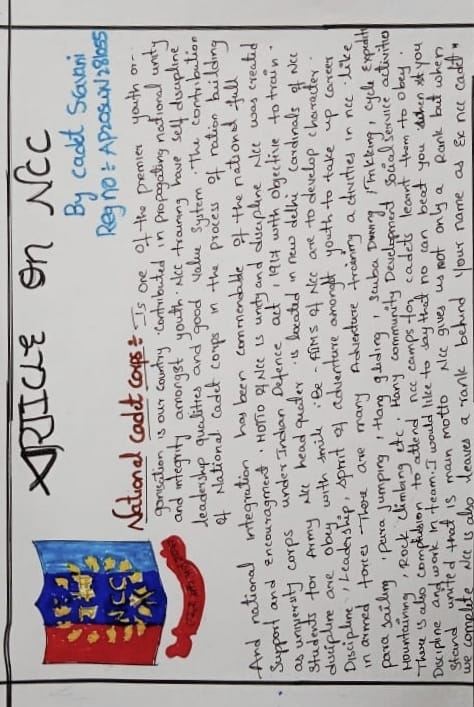 ARTICLE ON NCC
By cadet Sravani
Reg no:- AP20SWN281055
National Cadet Corps:- Is one of the premier youth or-
gonisation is our country contributed in Propogating national unity
and integrity amongst youth. Ncc training have self discipline
leadership qualities and good value system. The contribution
of National Cadet corps in the process of nation building
And national integration has been commendable of the national full
Support and encouragment. MOTTO of Ncc is unity and discipline Ncc was created
as university corps under Indian Defence act, 1917 with objective to train.
Students for Army Ncc head quater is located in new delhi Cardinals of Ncc
discipline are obay with smile. Be - AIMS of Ncc are to develop character.
Discipline, Leadership, spirit of adventure amongst youth to take up career
in armed forces There are many Adventure training activities in ncc like
para sailing, para jumping, Hang gliding, scuba Driving, Trikking, cycle Expediti
Mountaining, Rock climbing etc. Many community Development Social Service activities
There is also compulsion to attend ncc camps for cadets learnt them to obey.
Discipline and work in team. I would like to say that no can beat you when you
stand united that is main motto Ncc gives us not only a Rank but when
we complete Ncc is also leaves a rank behind Your name as Ex ncc cadet"